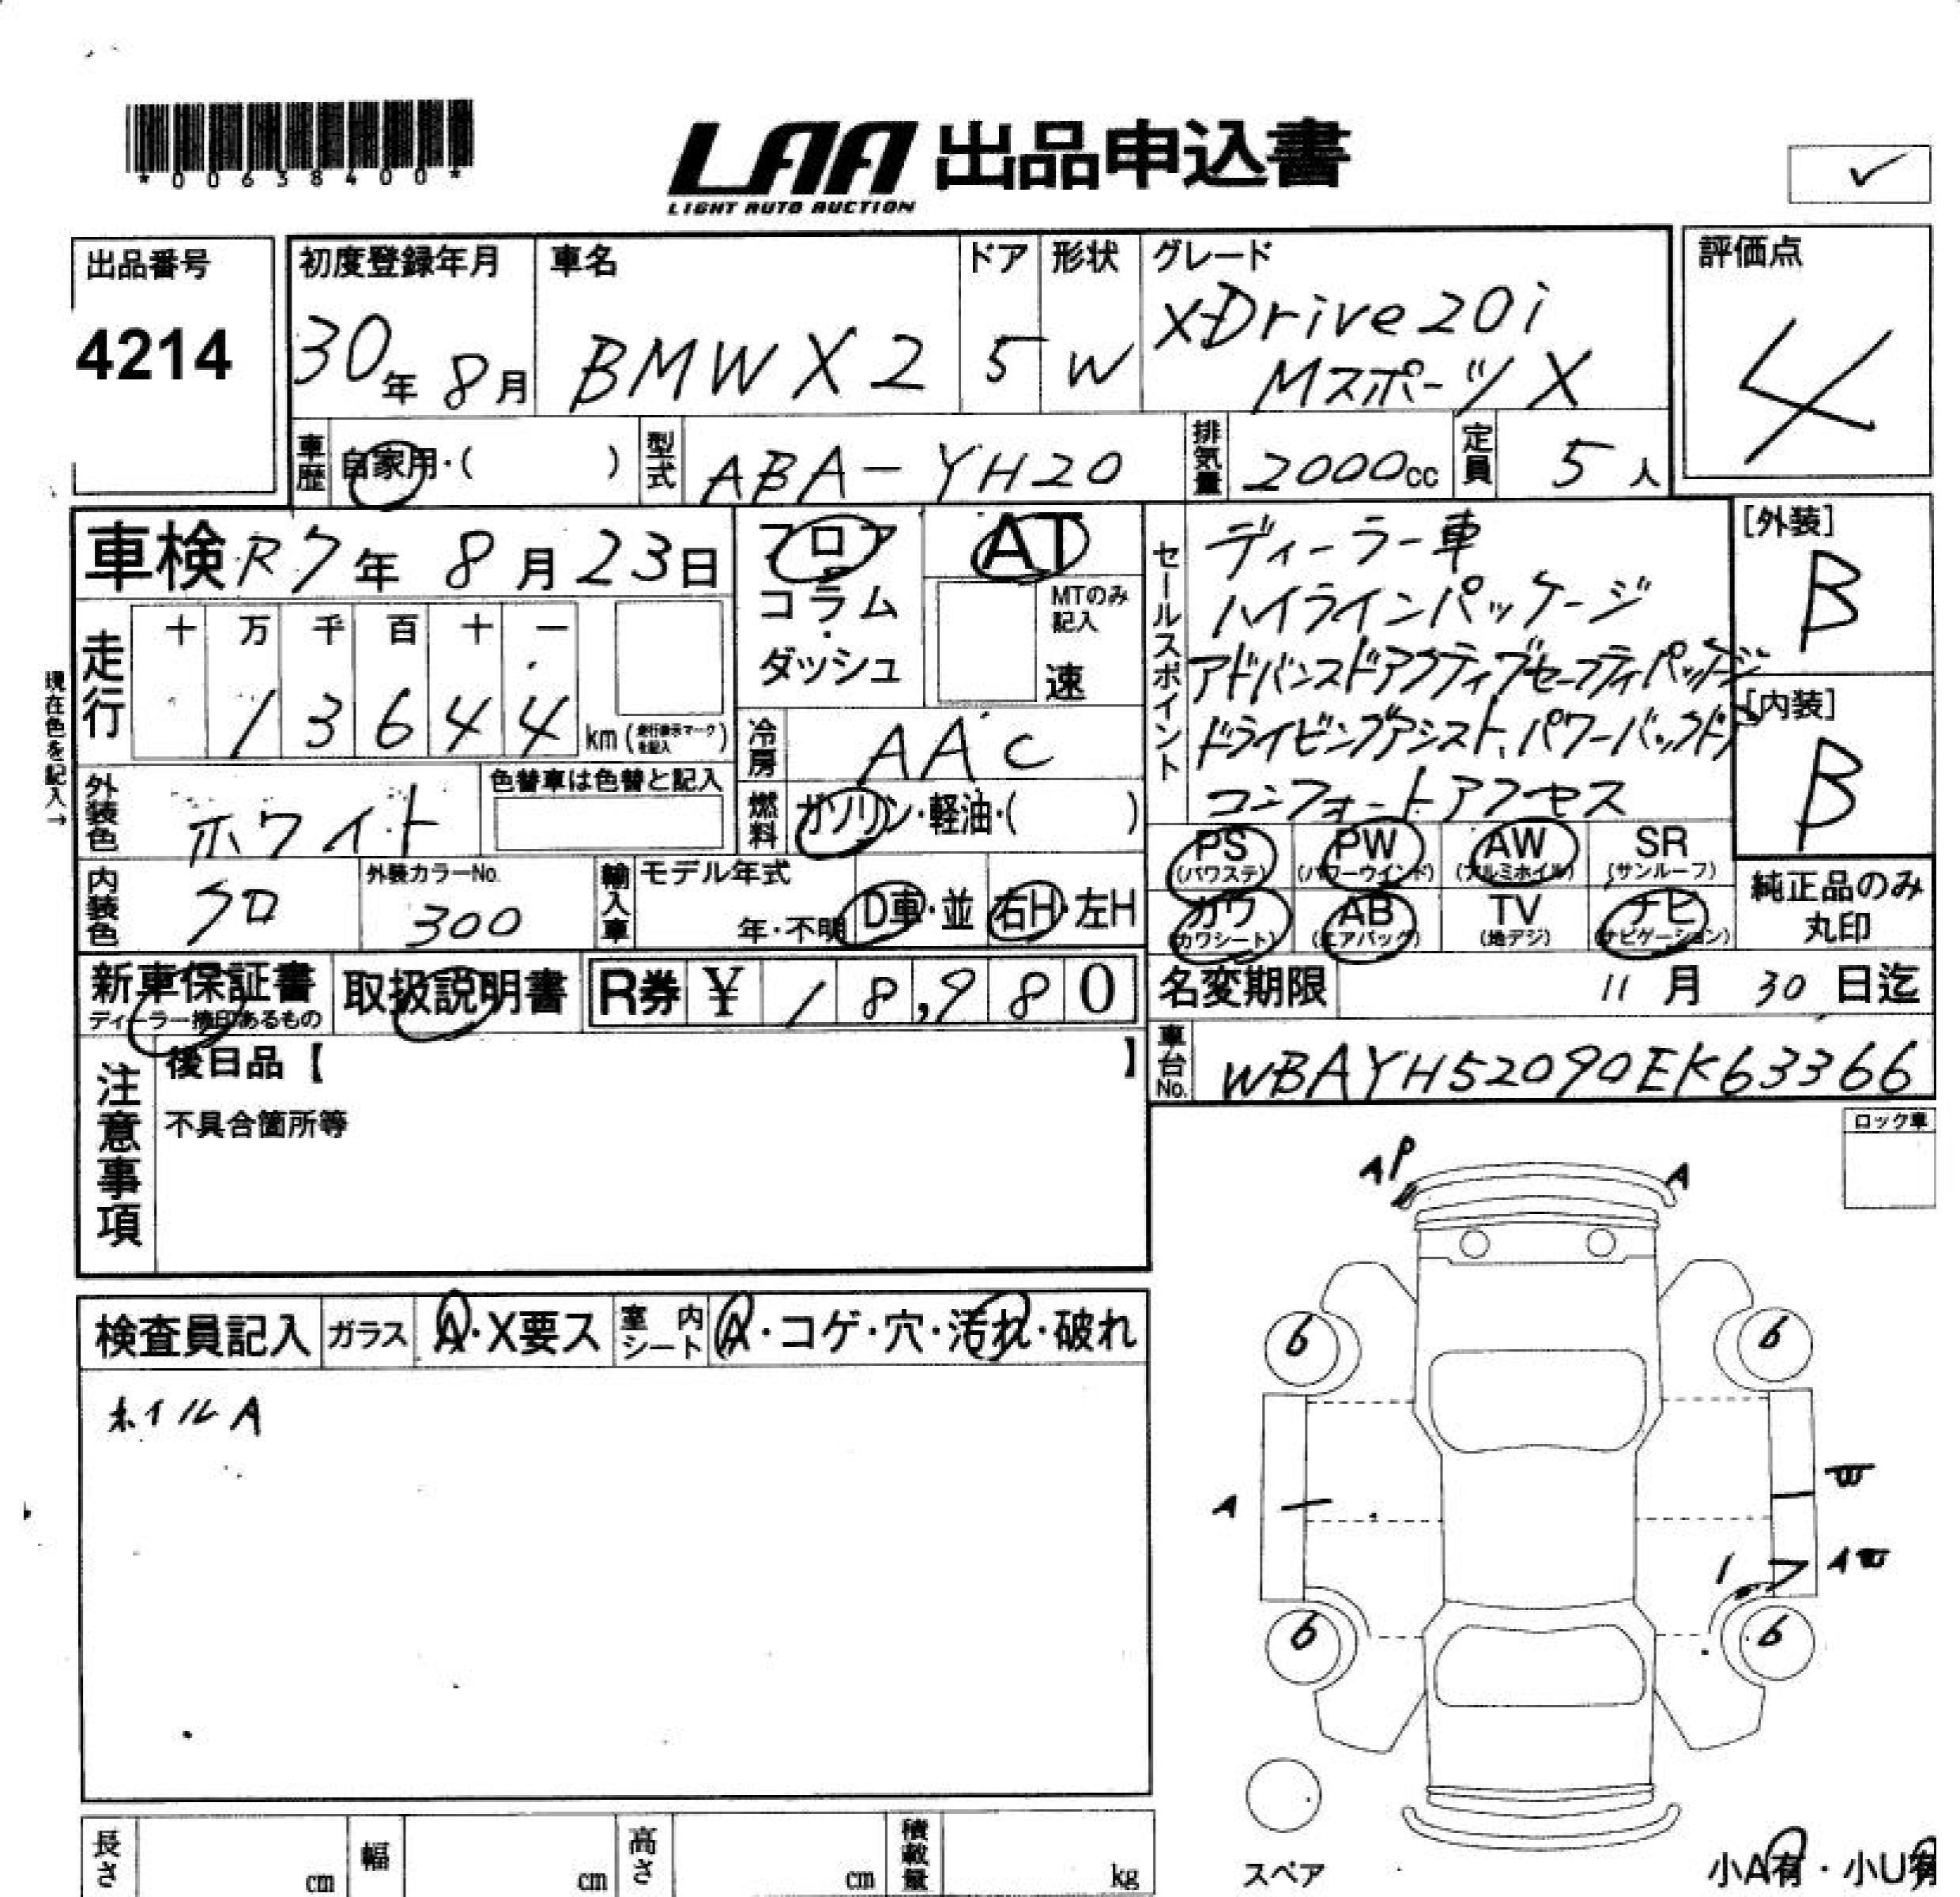 *00638400*
LAA 出品申込書
LIGHT AUTO AUCTION
✓
出品番号
4214
初度登録年月
30年 8月
車名
BMW X2
ドア
5
形状
W
グレード
xDrive20i
MスポーツX
評価点
4
車歴
自家用・( )
型式
ABA-YH20
排気量
2000cc
定員
5人
車検 R7年 8月 23日
フロア
コラム
・
ダッシュ
AT
MTのみ
記入
速
セールスポイント
ディーラー車
ハイラインパッケージ
アドバンスドアクティブセーフティパッケージ
ドライビングアシスト、パワーバックドア
コンフォートアクセス
[外装]
B
[内装]
B
現在色を記入→
走行
十 万 千 百 十 一
1 3 6 4 4
km (走行表示マークを記入)
冷房
AAC
外装色
ホワイト
色替車は色替と記入
燃料
ガソリン・軽油・( )
PS
(パワステ)
PW
(パワーウインド)
AW
(アルミホイル)
SR
(サンルーフ)
内装色
クロ
外装カラーNo.
300
輸入車
モデル年式
年・不明
D車・並
右H・左H
カワ
(カワシート)
AB
(エアバッグ)
TV
(地デジ)
ナビ
(ナビゲーション)
純正品のみ
丸印
新車保証書
ディーラー捺印あるもの
取扱説明書
R券 ¥ 18,980
名変期限 11月 30日迄
車台No.
WBAYH52090EK63366
注意事項
後日品【 】
不具合箇所等
ロック車
AP
A
検査員記入
ガラス
A・X要ス
室内シート
A・コゲ・穴・汚れ・破れ
ホイルA
6
6
A
W
AW
6
6
長さ
cm
幅
cm
高さ
cm
積載量
kg
スペア
小A有・小U有